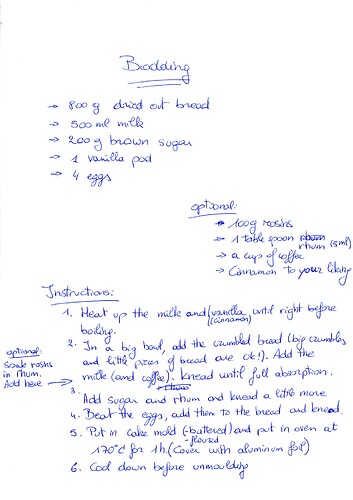 Bodding
→ 800 g dried out bread
→ 500 ml milk
→ 200 g brown sugar
→ 1 vanilla pod
→ 4 eggs
optional:
→ 100g rosins
→ 1 table spoon rhum (5ml)
→ a cup of coffee
→ Cinnamon to your liking
Instructions:
1. Heat up the milk and (vanilla until right before
(cinnamon)
boiling.
2. In a big bowl, add the crumbled bread (big crumbles
and little pieces of bread are ok!). Add the
milk (and coffee). Knead until full absorption.
optional:
Soak rosins
in rhum.
Add here →
3. Add sugar and rhum and knead a little more
4. Beat the eggs, add them to the bread and knead.
5. Put in cake mold (-buttered) and put in oven at
-floured
170°C for 1h. (Cover with aluminum foil)
6. Cool down before unmoulding